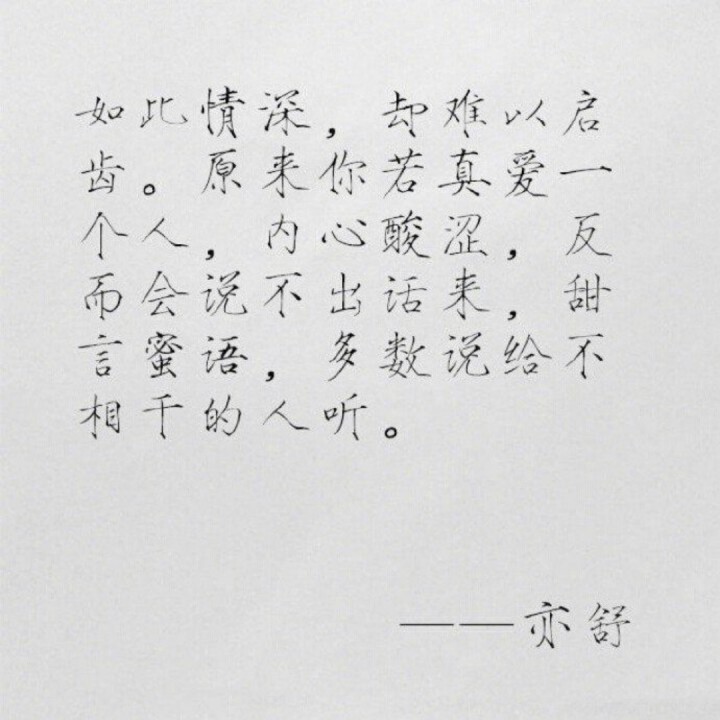 如此情深，却难以启
齿。原来你若真爱一
个人，内心酸涩，反
而会说不出话来，甜
言蜜语，多数说给不
相干的人听。
——亦舒